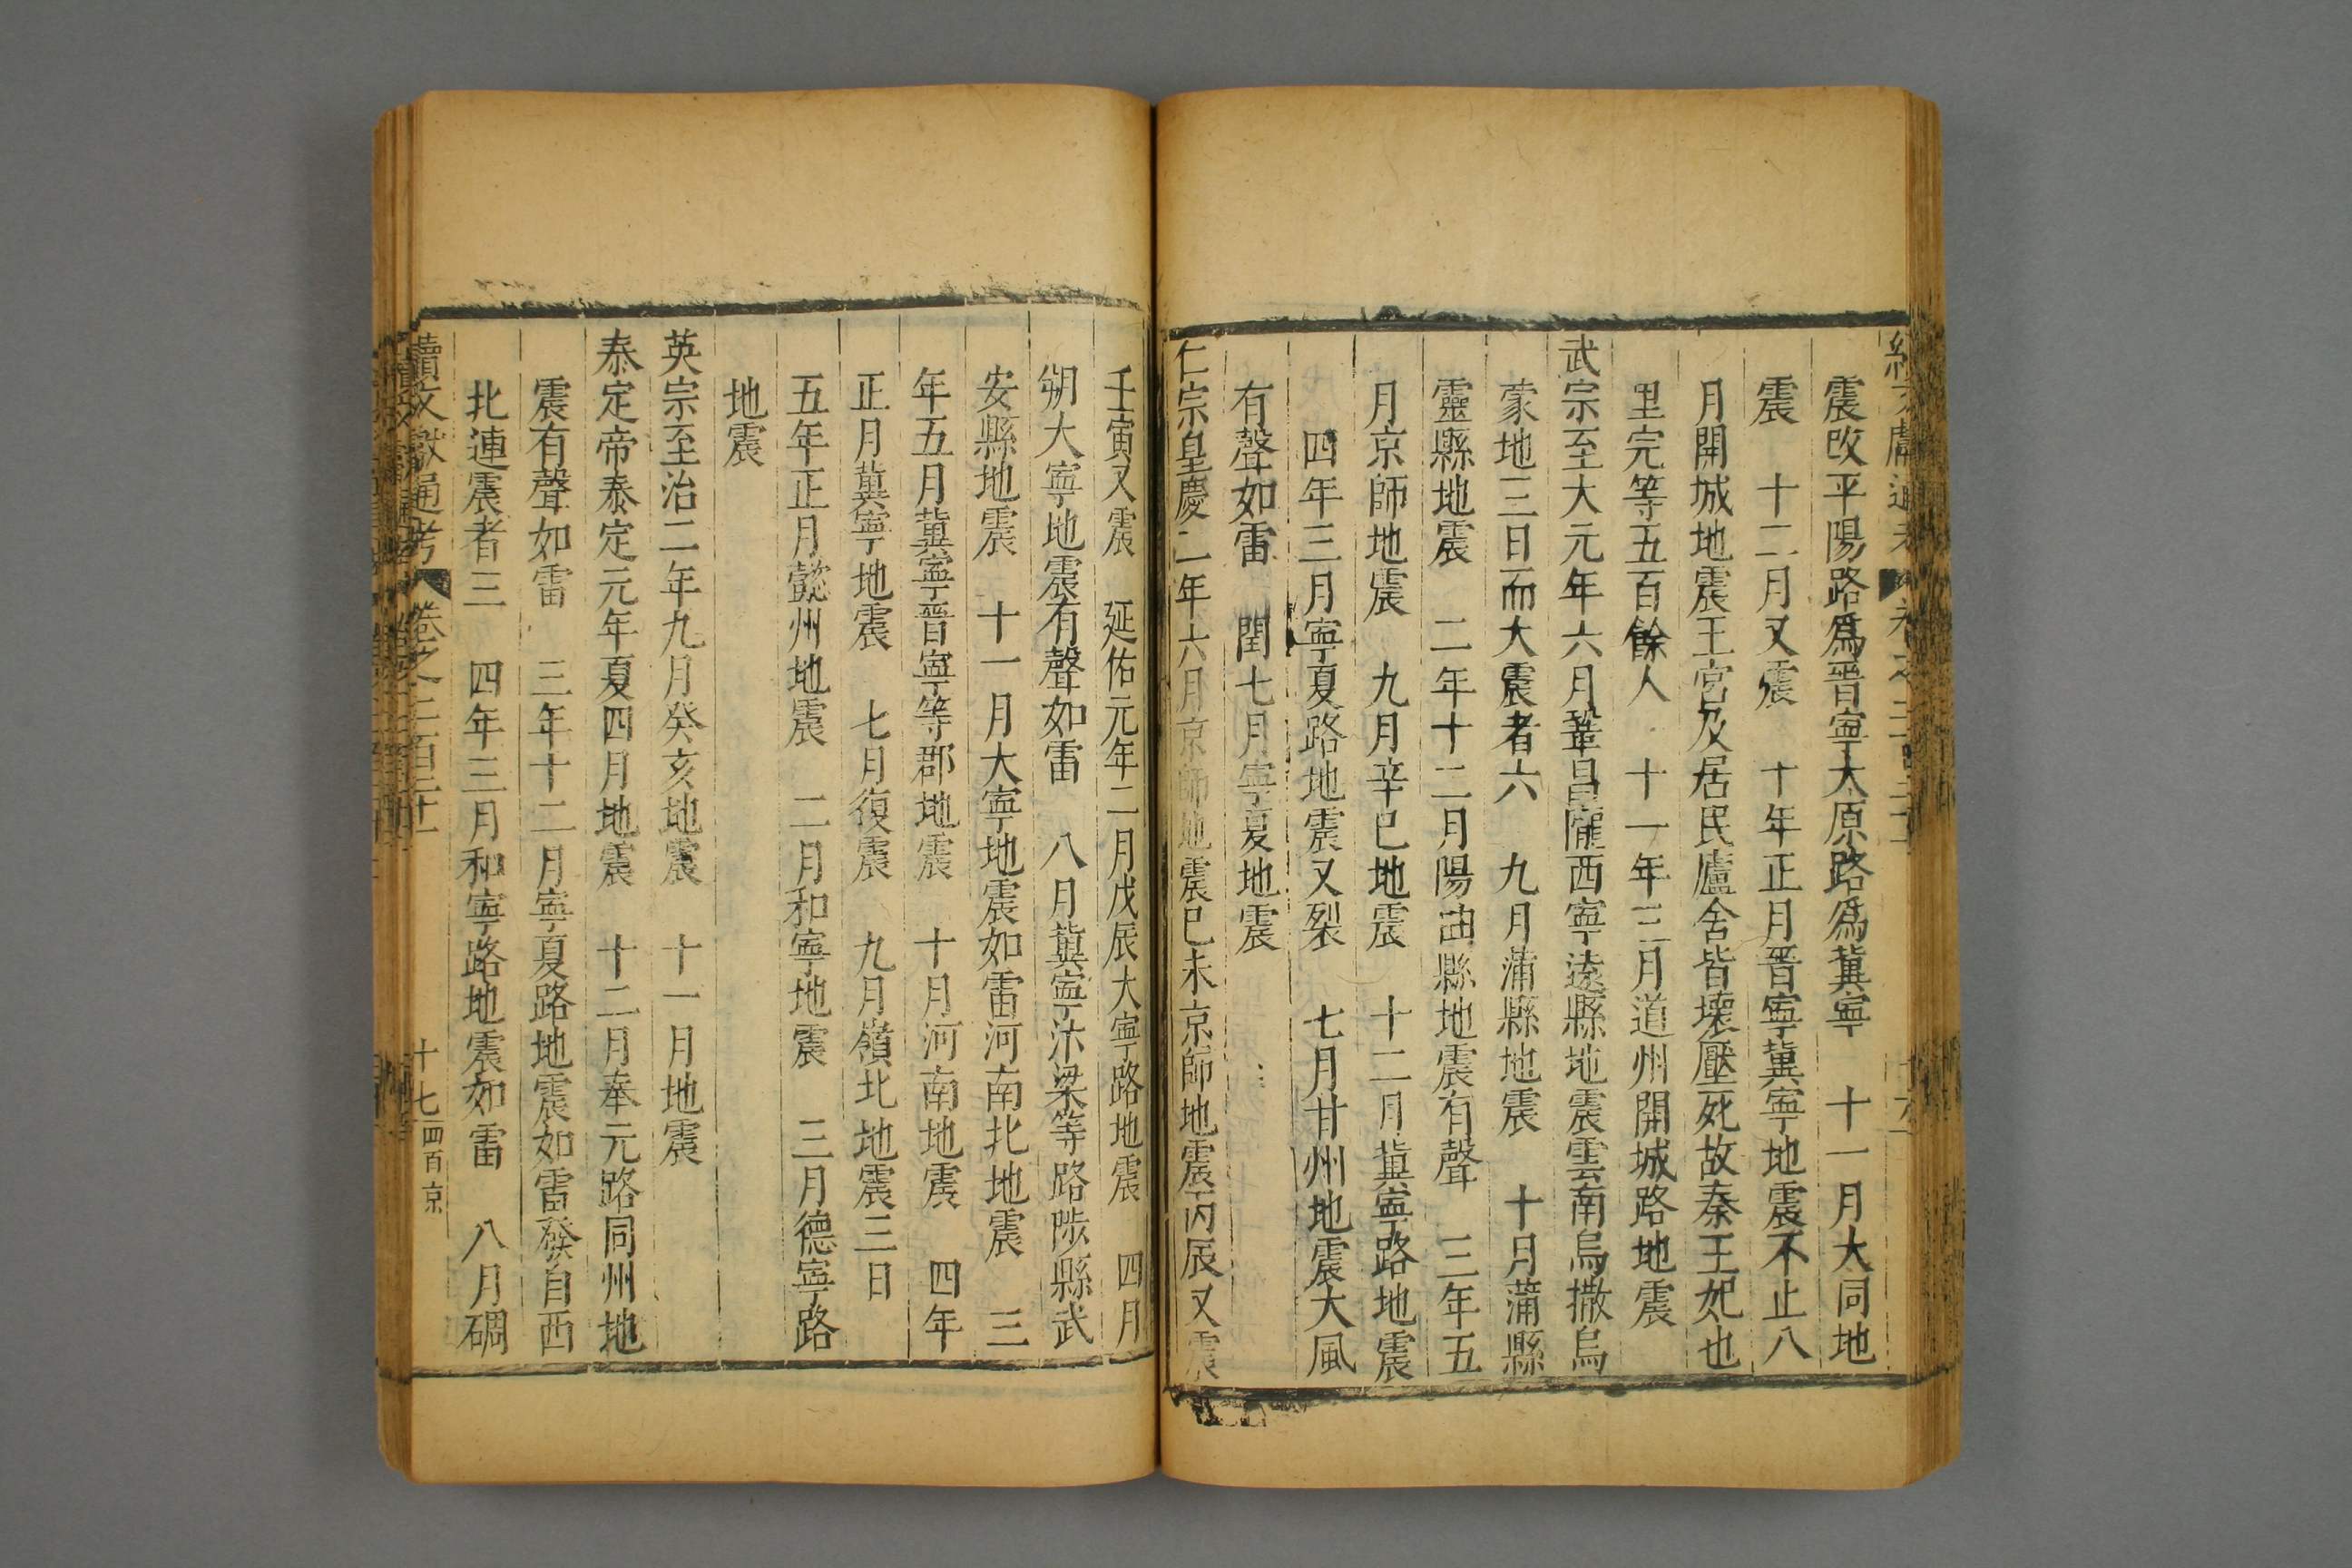 震改平陽路爲晉寧太原路爲冀寧　十一月大同地
震　十二月又震　十年正月晉寧冀寧地震不止八
月開城地震王宮及居民廬舍皆壞壓死故秦王妃也
里完等五百餘人　十一年三月道州開城路地震
武宗至大元年六月鞏昌隴西寧遠縣地震雲南烏撒烏
蒙地三日而大震者六　九月蒲縣地震　十月蒲縣
靈縣地震　二年十二月陽曲縣地震有聲　三年五
月京師地震　九月辛巳地震　十二月冀寧路地震
四年三月寧夏路地震又裂　七月甘州地震大風
有聲如雷　閏七月寧夏地震
仁宗皇慶二年六月京師地震巳未京師地震丙辰又震
壬寅又震　延佑元年二月戊辰大寧路地震　四月
朔大寧地震有聲如雷　八月冀寧汴梁等路陟縣武
安縣地震　十一月大寧地震如雷河南北地震　三
年五月冀寧晉寧等郡地震　十月河南地震　四年
正月冀寧地震　七月復震　九月嶺北地震三日
五年正月懿州地震　二月和寧地震　三月德寧路
地震
英宗至治二年九月癸亥地震　十一月地震
泰定帝泰定元年夏四月地震　十二月奉元路同州地
震有聲如雷　三年十二月寧夏路地震如雷發自西
北連震者三　四年三月和寧路地震如雷　八月碉
續文獻通考　卷之二百二十一　十七　四百京